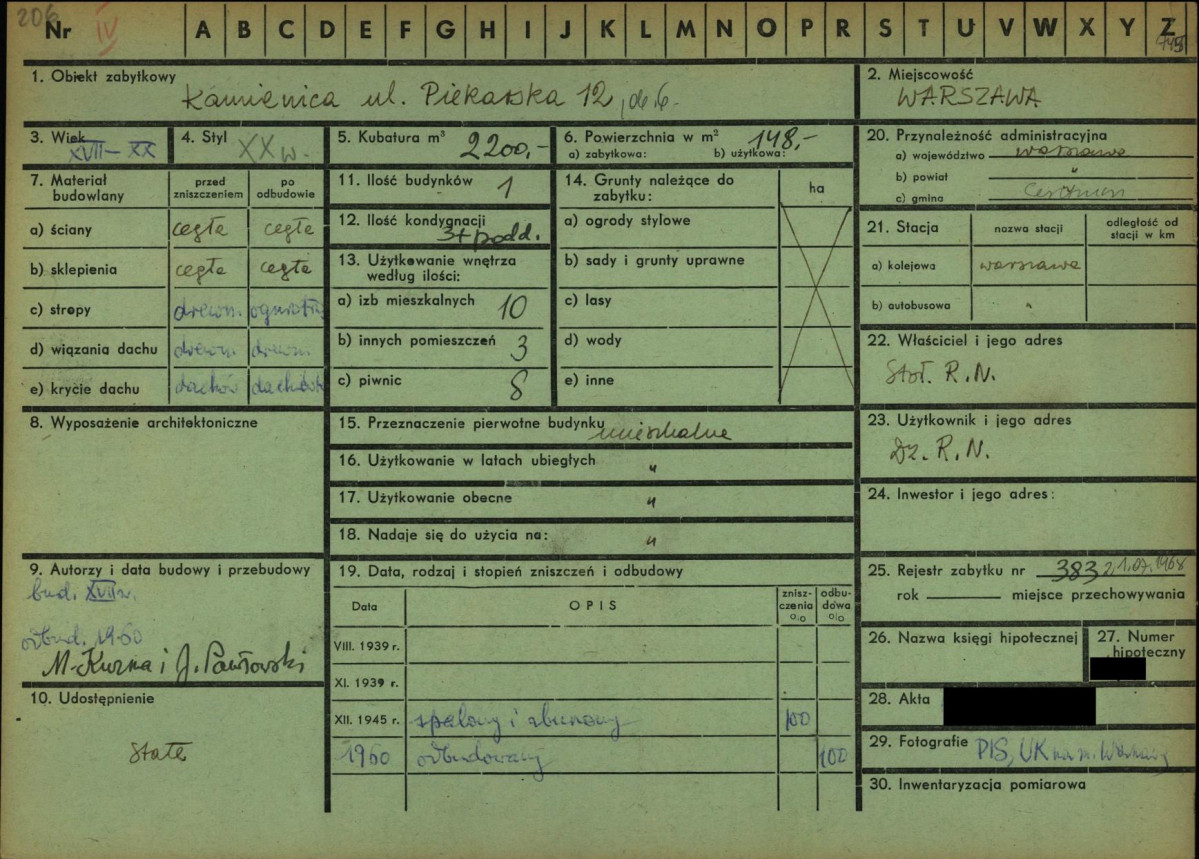 206
Nr IV A B C D E F G H I J K L M N O P R S T U V W X Y Z
745
1. Obiekt zabytkowy
Kamienica ul. Piekarska 12, d. 6.
2. Miejscowość
WARSZAWA
3. Wiek
XVII - XX
4. Styl
XX w.
5. Kubatura m³ 2200,-
6. Powierzchnia w m² 148,-
a) zabytkowa: b) użytkowa:
20. Przynależność administracyjna
a) województwo warszawa
b) powiat "
c) gmina
7. Materiał budowlany
przed zniszczeniem
po odbudowie
a) ściany cegła cegła
b) sklepienia cegła cegła
c) stropy drewn. ogniotrw
d) wiązania dachu drewn. drewn.
e) krycie dachu dachów dachówk
11. Ilość budynków 1
12. Ilość kondygnacji
3+podd.
13. Użytkowanie wnętrza
według ilości:
a) izb mieszkalnych 10
b) innych pomieszczeń 3
c) piwnic 8
14. Grunty należące do
zabytku:
ha
a) ogrody stylowe
b) sady i grunty uprawne
c) lasy
d) wody
e) inne
21. Stacja
nazwa stacji
odległość od
stacji w km
a) kolejowa warszawa
b) autobusowa "
22. Właściciel i jego adres
Stoł. R.N.
23. Użytkownik i jego adres
Dz. R.N.
24. Inwestor i jego adres:
8. Wyposażenie architektoniczne
15. Przeznaczenie pierwotne budynku mieszkalne
16. Użytkowanie w latach ubiegłych "
17. Użytkowanie obecne "
18. Nadaje się do użycia na: "
9. Autorzy i data budowy i przebudowy
bud. XVII w.
odbud. 1960
M. Kuzma i J. Pawłowski
10. Udostępnienie
Stałe
19. Data, rodzaj i stopień zniszczeń i odbudowy
Data
OPIS
znisz-
czenia
o/o
odbu-
dowa
o/o
VIII. 1939 r.
XI. 1939 r.
XII. 1945 r. spalony i zburzony 100
1960 odbudowany 100
25. Rejestr zabytku nr 383 z 1.07.1968
rok miejsce przechowywania
26. Nazwa księgi hipotecznej
27. Numer
hipoteczny
28. Akta
29. Fotografie PIS, UK na m. Warszawy
30. Inwentaryzacja pomiarowa